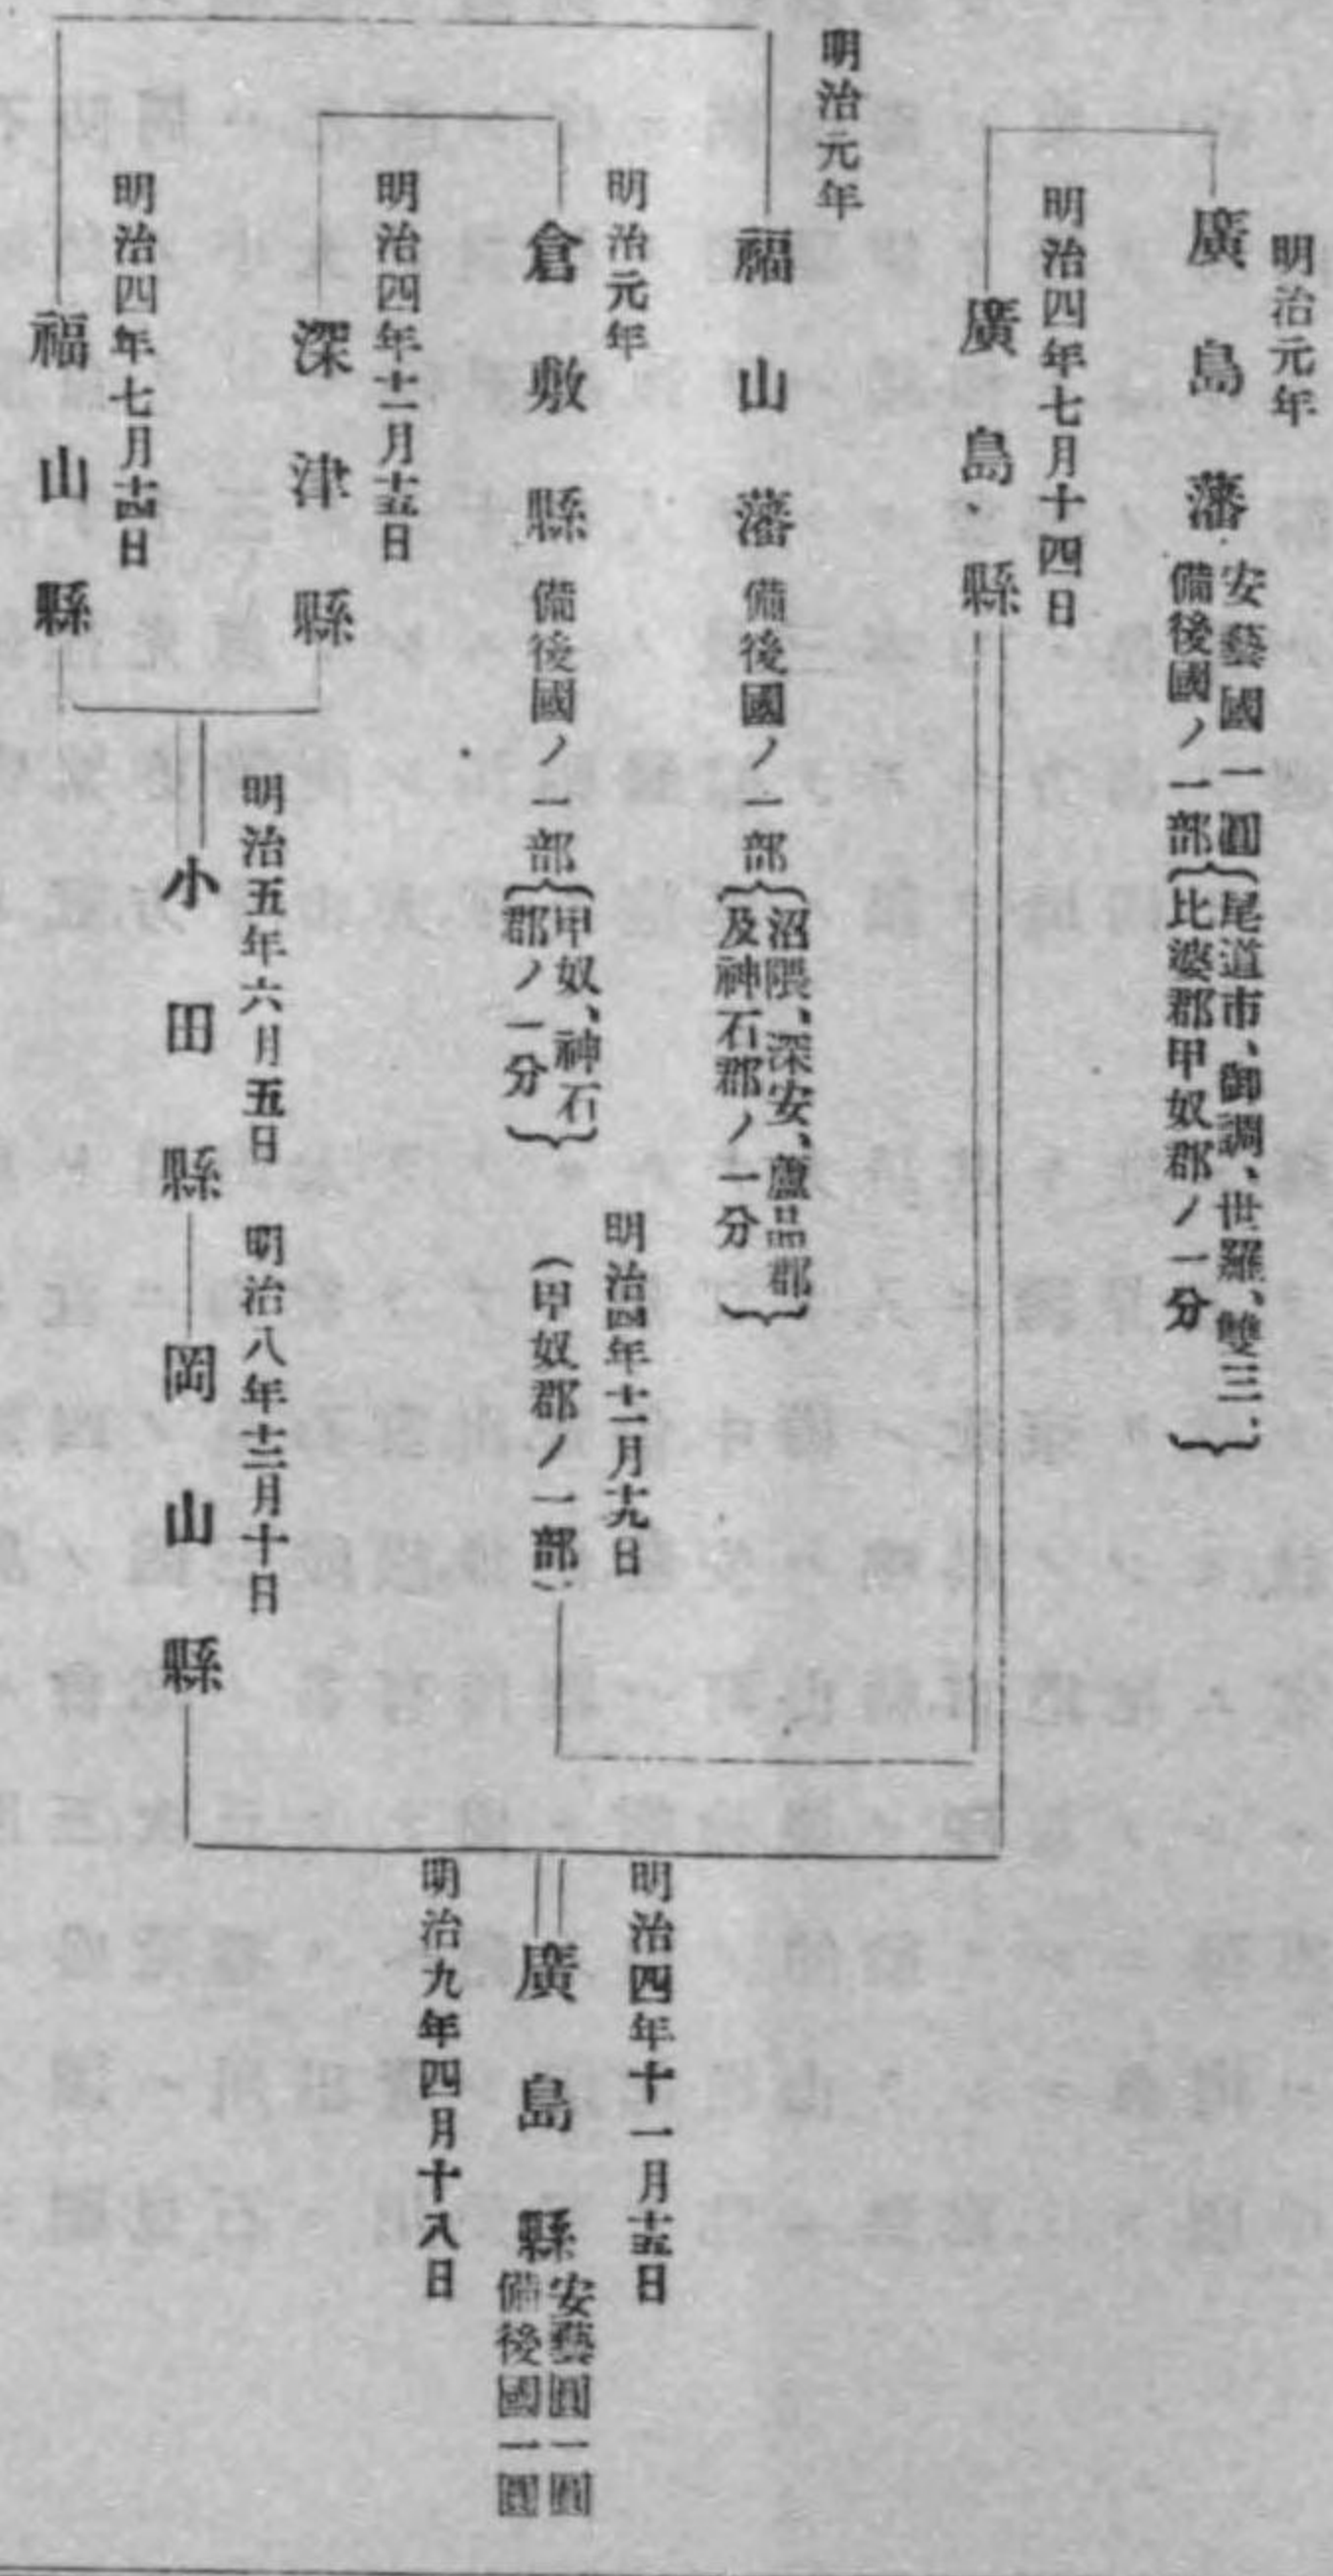 明治元年
廣島藩
安藝國一圓
備後國ノ一部{尾道市、御調、世羅、雙三、
比婆郡甲奴郡ノ一分}
明治四年七月十四日
廣島縣
明治元年
福山藩
備後國ノ一部{沼隈、深安、蘆品郡
及神石郡ノ一分}
明治元年
倉敷縣
備後國ノ一部{甲奴、神石
郡ノ一分}
明治四年十一月十九日
(甲奴郡ノ一部)
明治四年十一月十五日
深津縣
明治四年七月十四日
福山縣
明治五年六月五日
小田縣
明治八年十二月十日
岡山縣
明治四年十一月十五日
廣島縣
安藝圓一圓
備後國一圓
明治九年四月十八日